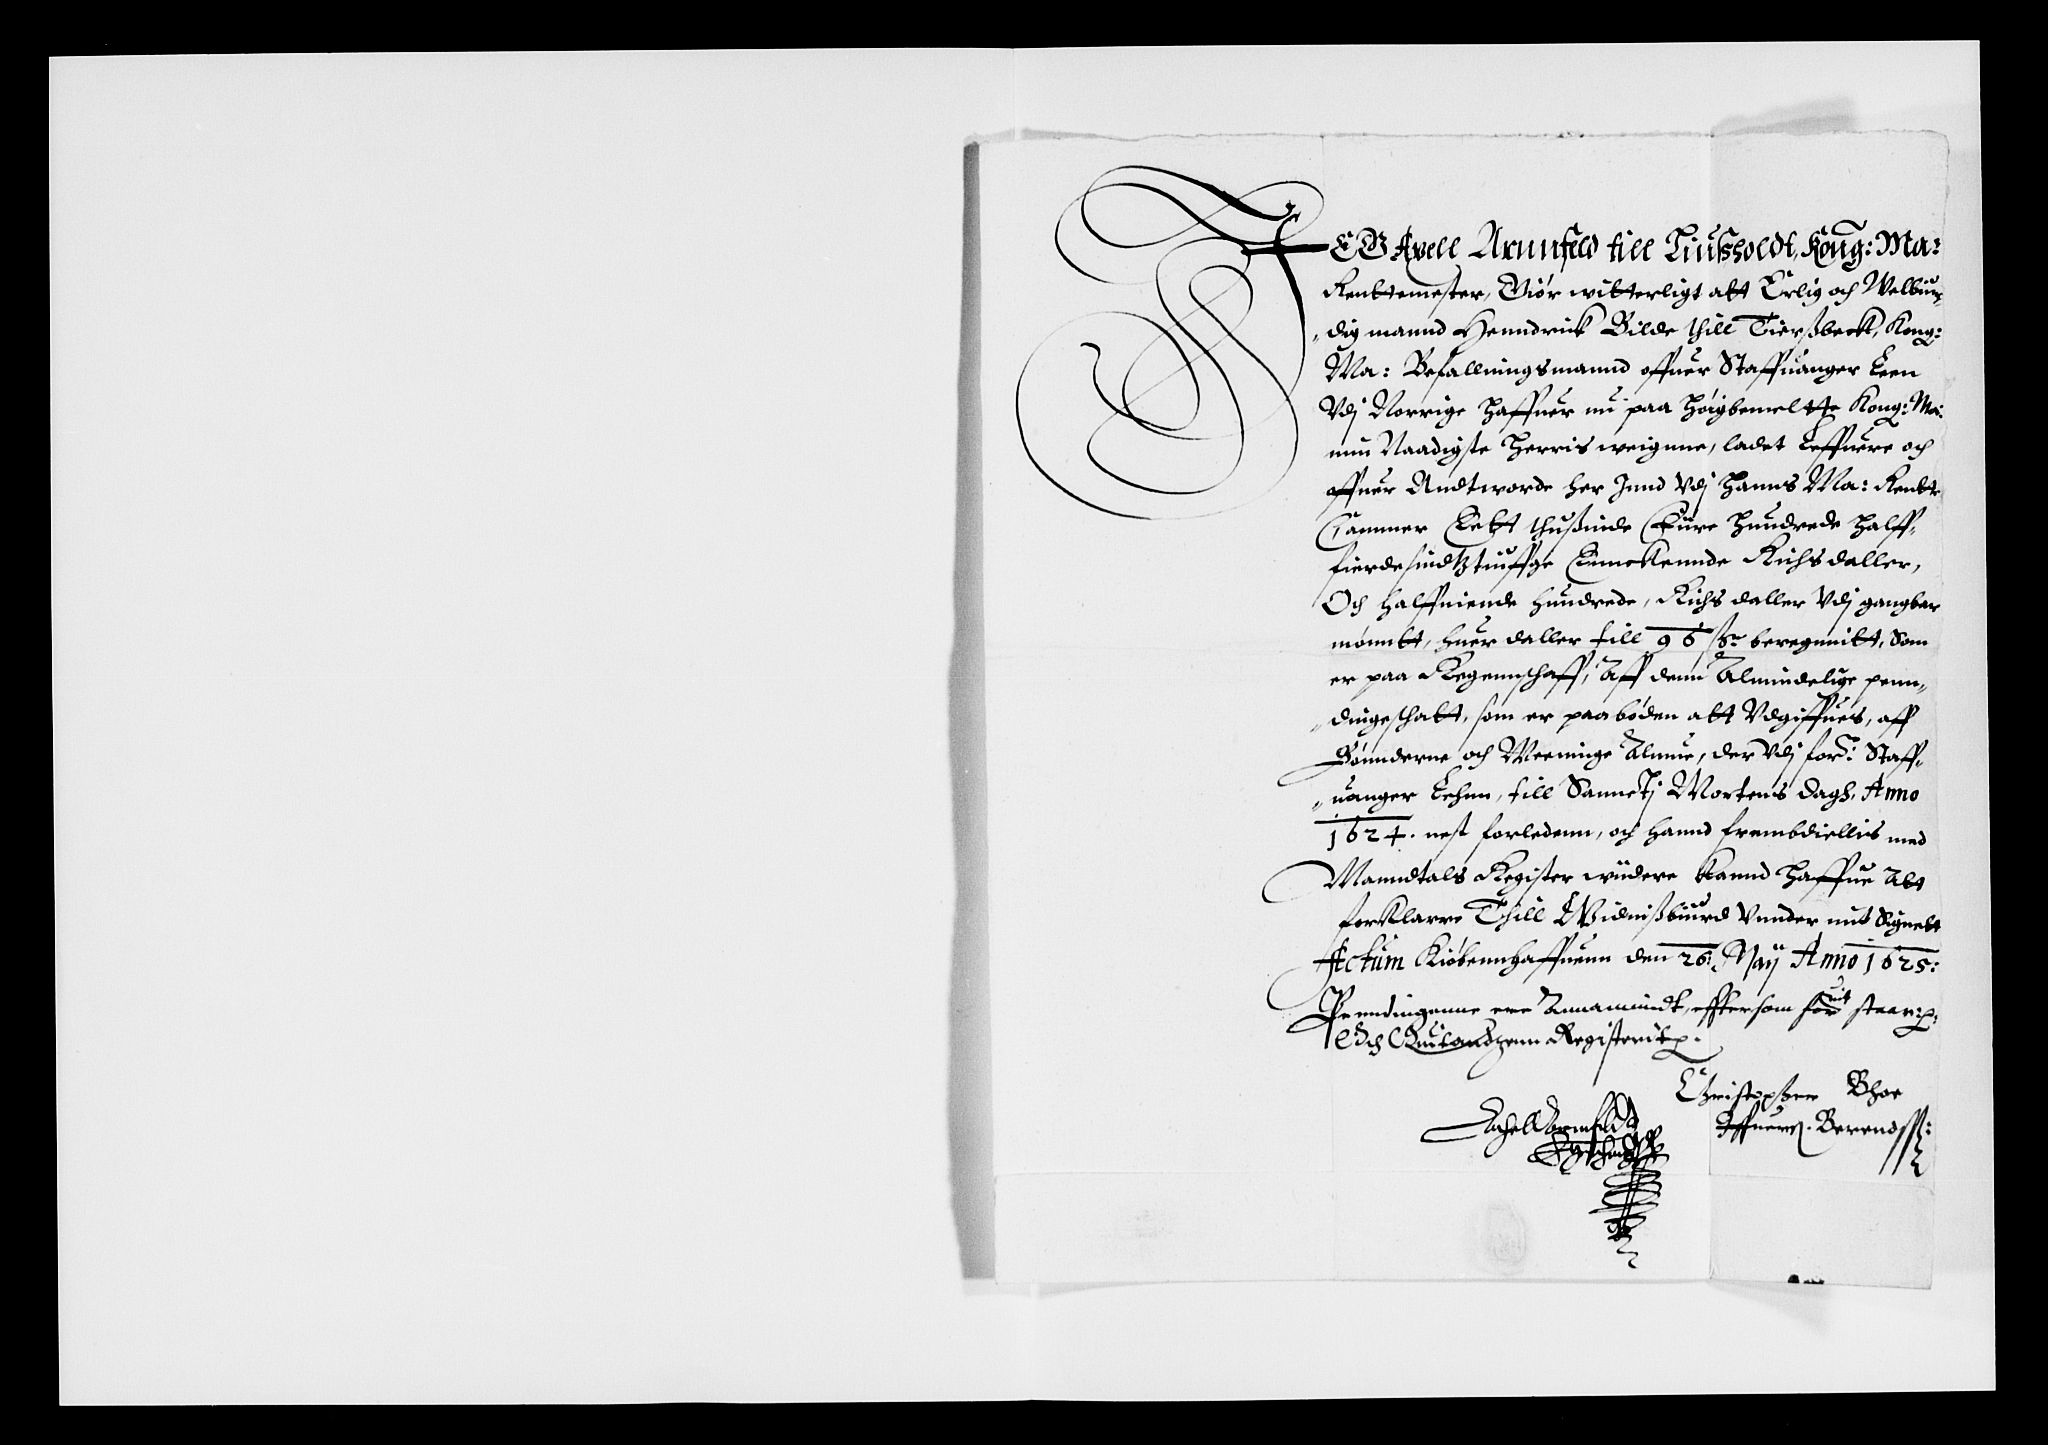 IEG Axell Arennfeld till Tiuffholdt, Kong: Ma:
Renttemester, Giør witterligt att Erlig och Welbiur-
dig mannd Henndrick Bilde thill Tiersbeck, Kong:
Ma: Befallningsmannd offuer Staffuanger Leen
Vdj Norrige Haffuer nu paa høigbemeltte Kong: Ma:
min Naadigste Herris weignne, ladet Leffuere och
offuer Andtworde her Innd Vdj Hanns Ma: Rentte
Cammer Tett thusinde Fiire Hundrede halff-
fierdesindtztiuffge Enneckennde Richsdaller,
Och halffniende Hundrede, Richs daller Vdj gangbar
møntt, huer daller till 96 sk beregnnitt, Som
er paa Regennschaff, Aff denn Almindelige penn-
dingeschatt, som er paabøden att Vdgiffues, aff
Bønnderne och Meninge Almue, der Vdj ford: Staff-
uanger Lehnn, till Sanncti Mortens dagh, Anno
1624. nest forledenn, och hannd frembdiellis med
Manndtals Register wiidere kannd Haffue Att
forklarre Thill Widnisbiurd Vnnder mit Signett
Actum Kiøbennhaffnenn den 26: Maij Anno 1625:
Penndingenne ere Annamindt, effter som for uit staar:
och Registerit
Axell Arennfeldt
Egenhandt
Christopher Bhoe
Iffuer Berends: